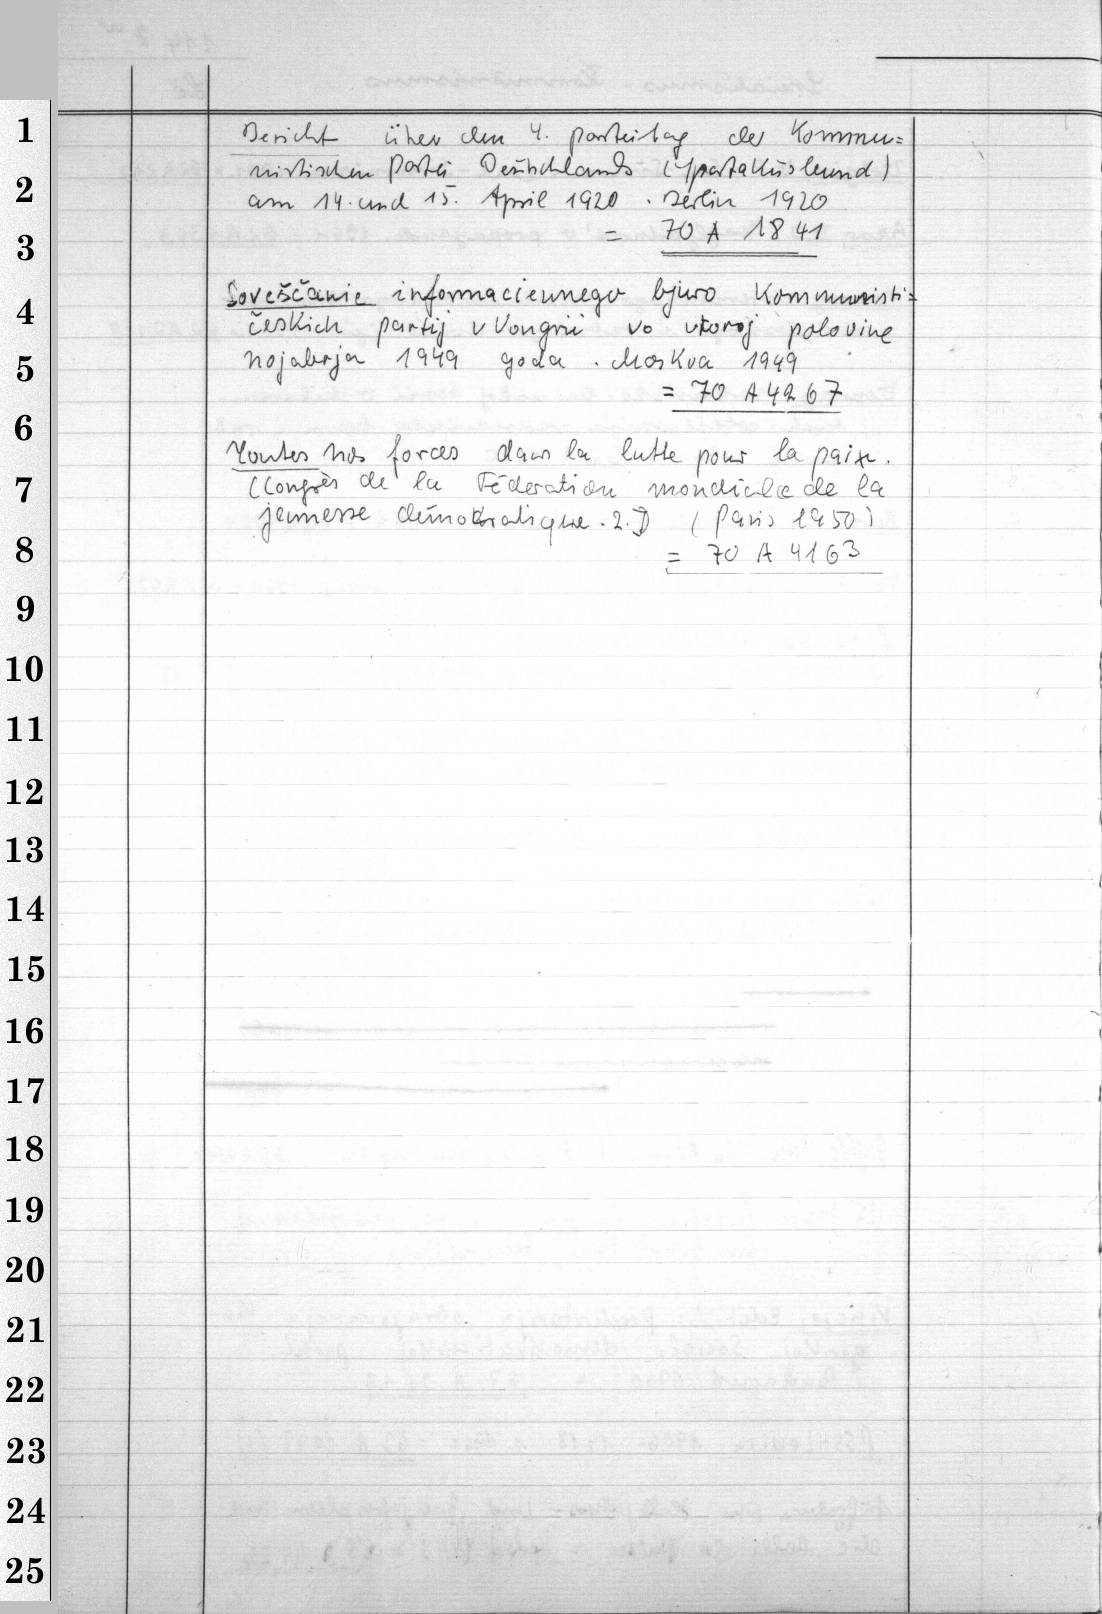 1
Bericht über den 4. Parteitag der Kommu=
nistischen Partei Deutschlands (Spartakusbund)
2
am 14. und 15. April 1920. Berlin 1920
= 70 A 1841
3
Soveščanie informacionnogo bjuro Kommunisti=
4
českich partij v Vengrii vo vtoroj polovine
nojabrja 1949 goda. Moskva 1949
5
= 70 A 4267
6
Toutes nos forces dans la lutte pour la paix.
(Congrès de la Féderation mondiale de la
7
jeunesse démokratique. 2.) (Paris 1950)
8
= 70 A 4163
9
10
11
12
13
14
15
16
17
18
19
20
21
22
23
24
25